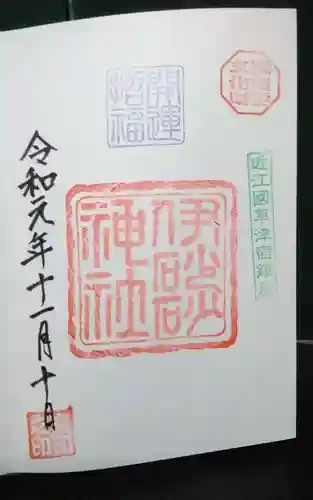 開運
招福
近江國草津宿鎮座
伊砂砂
神社
令和元年十一月十日